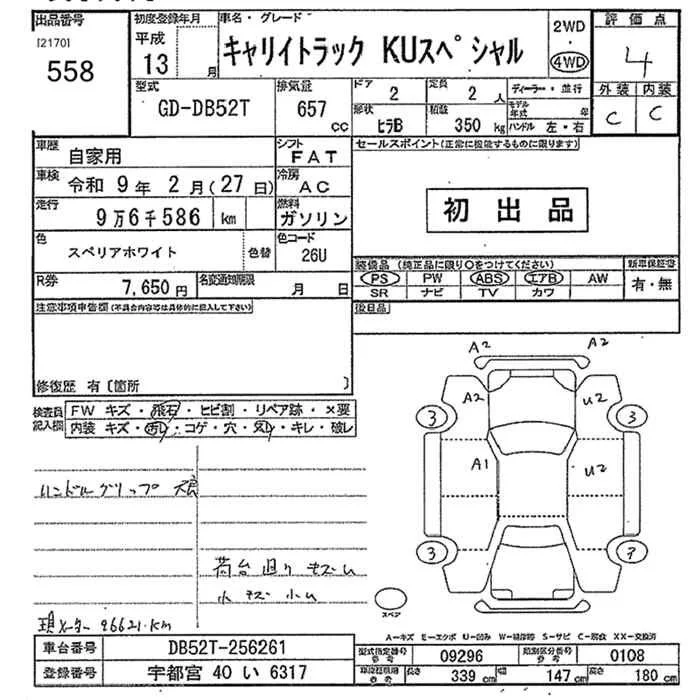 出品番号
[2170]
558
初度登録年月
平成
13 月
車名・グレード
キャリイトラック KUスペシャル
2WD
・
4WD
評価点
4
外装 内装
C C
型式
GD-DB52T
排気量
657
cc
ドア
2
定員
2 人
ディーラー・並行
形状
ヒラB
積数
350 kg
モデル年式 年
ハンドル 左・右
車歴
自家用
シフト
FAT
車検
令和 9 年 2 月(27 日)
冷房
AC
走行
9万6千586 km
燃料
ガソリン
色
スペリアホワイト
色替
色コード
26U
R券
7,650 円
名変通知期限
月 日
セールスポイント(正常に機能するものに限ります)
初出品
装備品(純正品に限り○をつけてください)
PS PW ABS エアB AW
SR ナビ TV カワ
新車保証書
有・無
後日品
注意事項申告欄(不具合内容等は具体的に記入して下さい)
修復歴 有〔箇所 〕
検査員
記入欄
FW キズ・飛石・ヒビ割・リペア跡・×要
内装 キズ・汚レ・コゲ・穴・スレ・キレ・破レ
ハンドルグリップ
荷台廻り キズム
小キズ 小ム
現メーター 96621.km
A2 A2
A2 U2
3 3
A1 U2
3
スペア
A-キズ E-エクボ U-凹み W-補修跡 S-サビ C-腐食 XX-交換済
車台番号
DB52T-256261
登録番号
宇都宮 40 い 6317
型式指定番号
参考
09296
類別区分番号
参考
0108
長さ
339 cm
幅
147 cm
高さ
180 cm